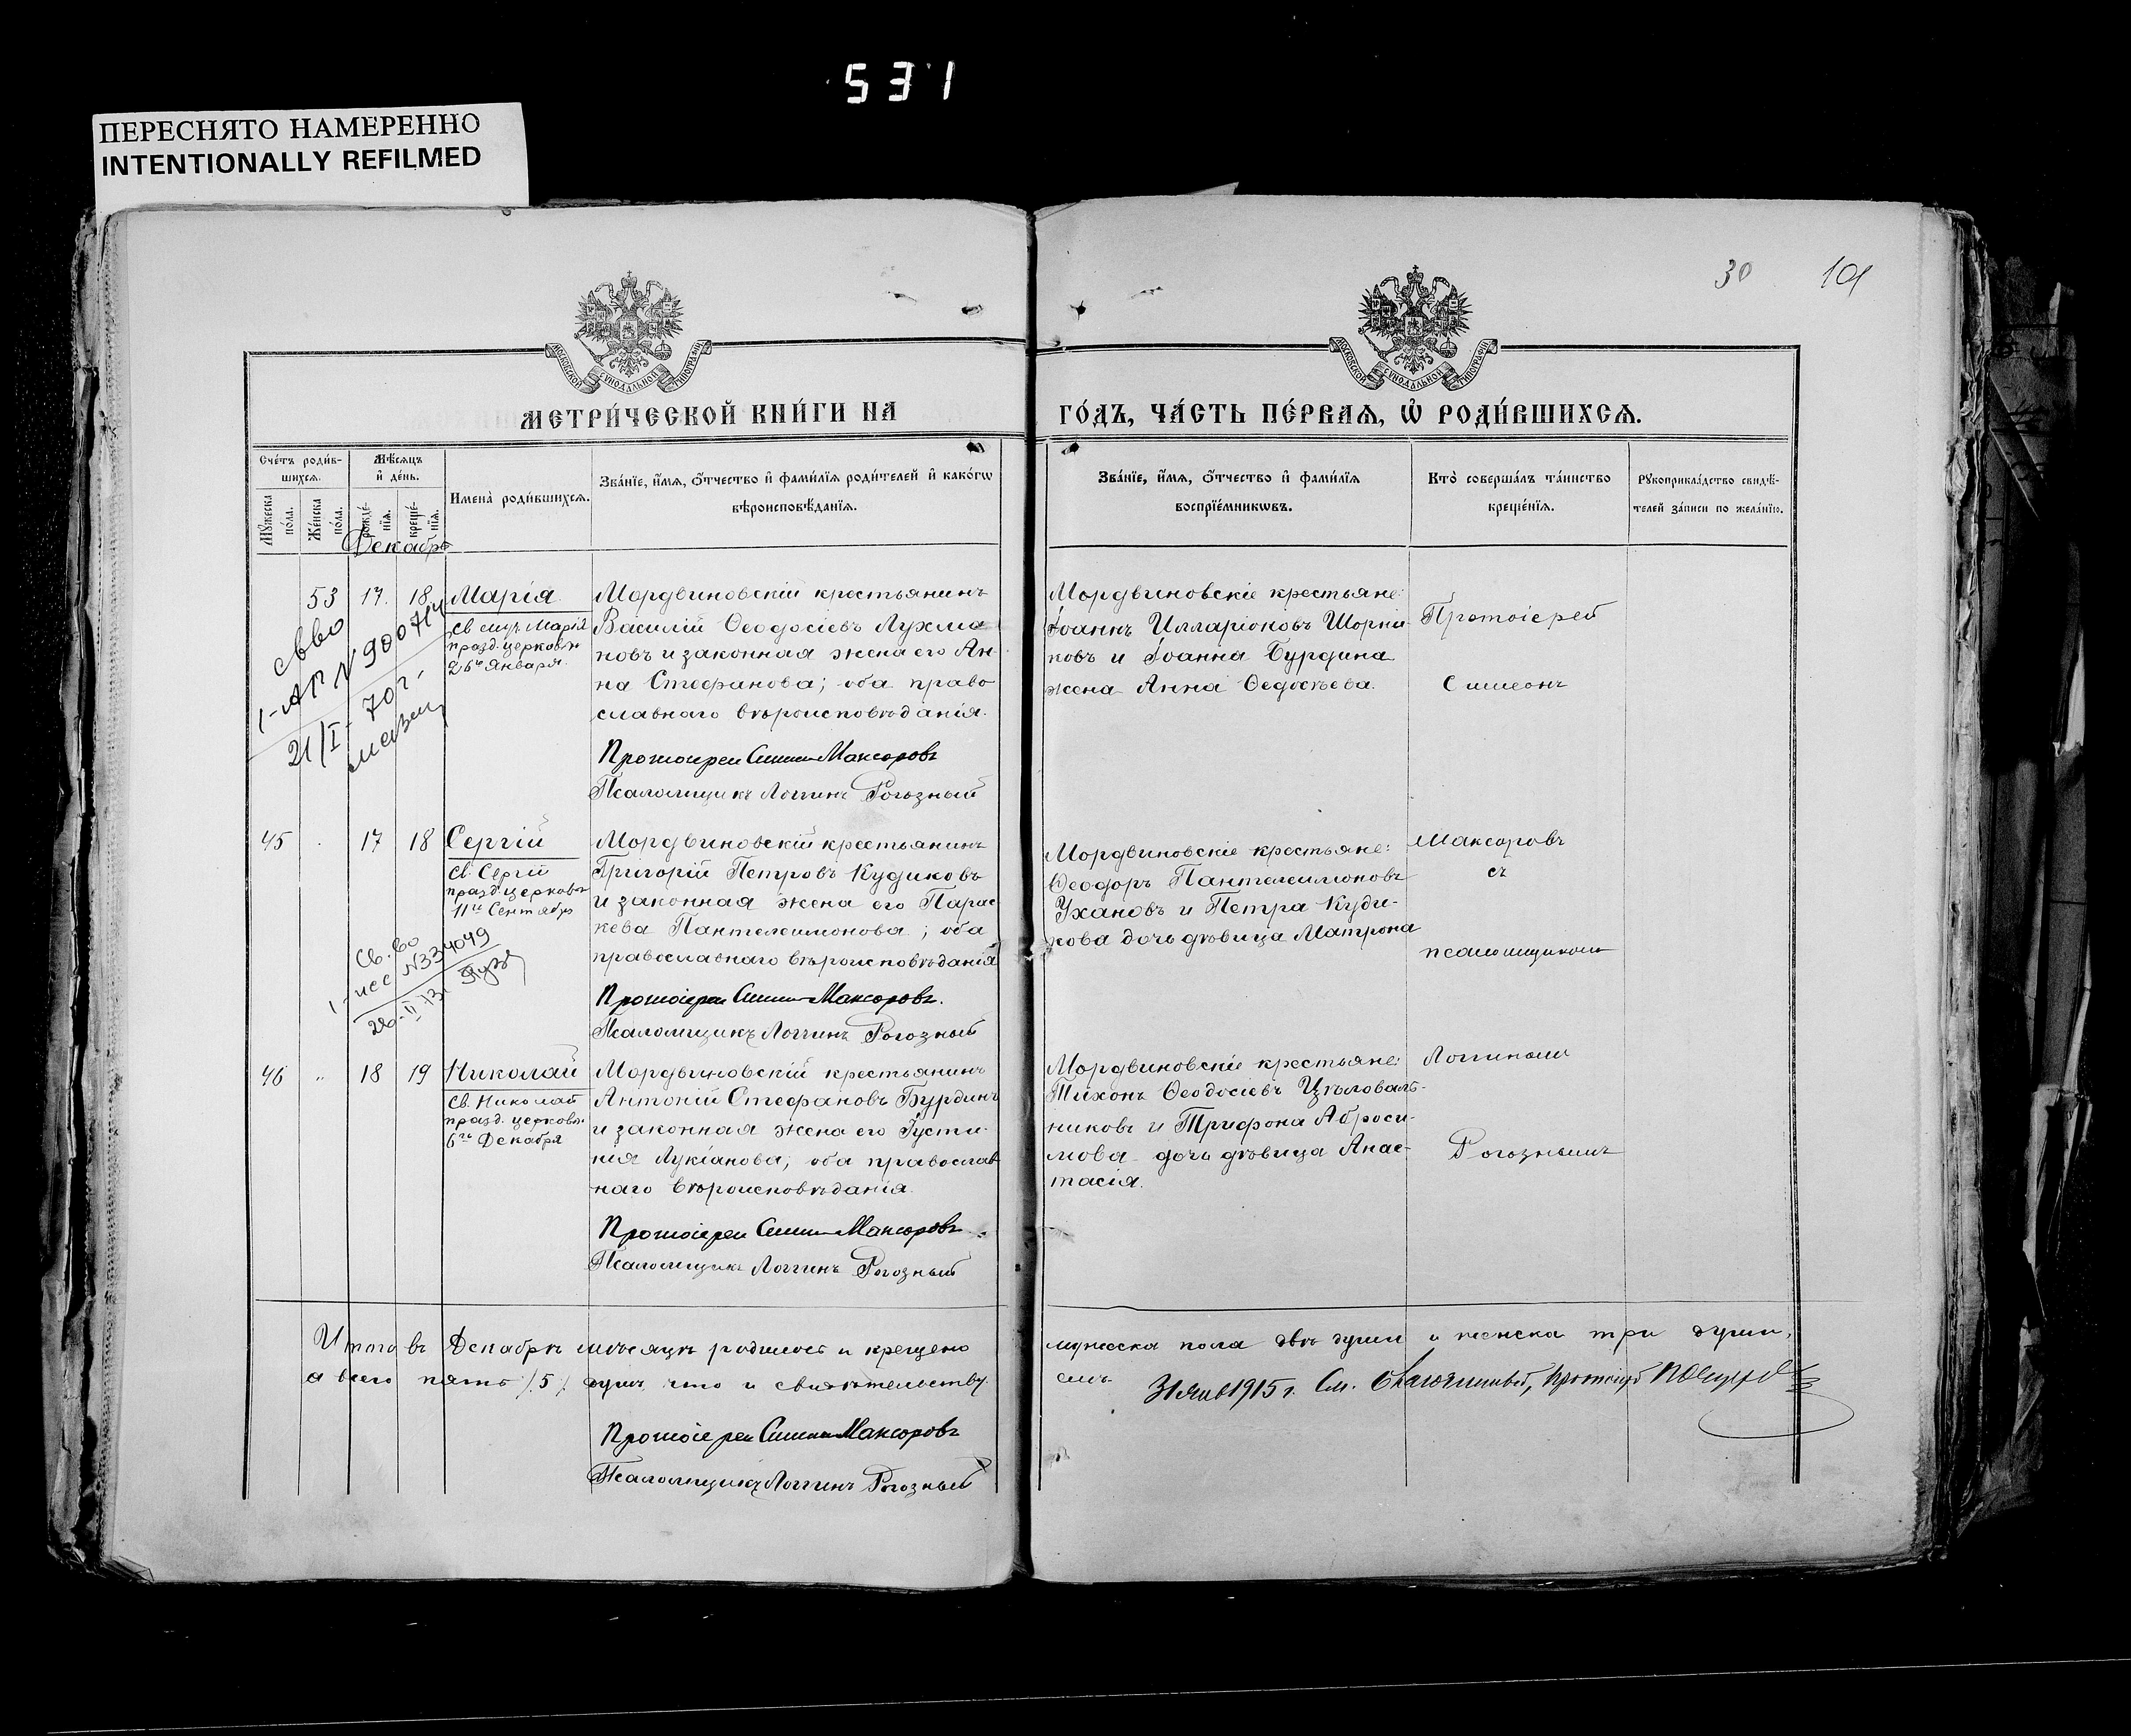 531
ПЕРЕСНЯТО НАМЕРЕННО
INTENTIONALLY REFILMED
30 101
МОСКОВСКОЙ СѴНОДАЛЬНОЙ ТИПОГРАФІИ
МОСКОВСКОЙ СѴНОДАЛЬНОЙ ТИПОГРАФІИ
МЕТРИ́ЧЕСКОЙ КНИ́ГИ НА
ГО́ДЪ, ЧА́СТЬ ПЕ́РВАЯ, Ѡ҆ РОДИ́ВШИХСЯ.
Сче́тъ роди́в-
шихся.
Мꙋ́жеска по́ла.
Же́нска по́ла.
Мѣ́сяцъ
и҆ де́нь.
рожде́-нїя.
креще́-нїя.
Имена̀ роди́вшихся.
Зва́нїе, и҆́мя, ѻ҆́тчество и҆ фами́лїя роди́телей и҆ како́гѡ
вѣроисповѣ́данїя.
Зва́нїе, и҆́мя, ѻ҆́тчество и҆ фами́лїя
воспрїе́мникѡвъ.
Кто̀ соверша́лъ та́инство
креще́нїя.
Рꙋкоприкла́дство свидѣ́-
телей за́писи по жела́нїю.
Декабрь
53 17. 18 Марія
Св муч. Марія
празд. церковью
26го Января.
Мордвиновскій крестьянинъ
Василій Ѳеодосіевъ Лухма
новъ и законная жена его Ан-
на Стефанова; оба право
славнаго вѣроисповѣданія.
Протоіерей Симеонъ Максоровъ
Псаломщикъ Логгинъ Рогозный
Мордвиновскіе крестьяне:
Іоаннъ Илларіоновъ Шорни-
ковъ и Іоанна Бурдина
жена Анна Ѳедосѣева.
Протоіерей
Симеонъ
св-во
I-АП N 900714
21/I-70г.
45 17 18 Сергій
Св. Сергій
празд. церковью
11го Сентября
Мордвиновскій крестьянинъ
Григорій Петровъ Кудиковъ
и законная жена его Парас
кева Пантелеимонова; оба
православнаго вѣроисповѣданія
Протоіерей Симеонъ Максоровъ.
Псаломщикъ Логгинъ Рогозный
Мордвиновскіе крестьяне:
Ѳеодоръ Пантелеимоновъ
Ухановъ и Петра Куди-
кова дочь дѣвица Матрона
Максоровъ
съ
псаломщикомъ
Св.-во
N334049
46 " 18 19 Николай
Св. Николай
празд. церковью
6го Декабря
Мордвиновскій крестьянинъ
Антоній Стефановъ Бурдинъ
и законная жена его Іусти-
нія Лукіанова; оба православ
наго вѣроисповѣданія.
Протоіерей Симеонъ Максоровъ.
Псаломщикъ Логгинъ Рогозный
Мордвиновскіе крестьяне:
Тихонъ Ѳеодосіевъ Цѣловаль-
никовъ и Трифона Аброси-
мова дочь дѣвица Анас-
тасія.
Логгиномъ
Рогознымъ
Итого въ Декабрѣ мѣсяцѣ родилось и крещено
мужеска пола двѣ души и женска три души,
а всего пять /5/ душъ, что и свидѣтельству-
емъ.
31 янв 1915 г. См. Благочинный, протоіерей
Протоіерей Симеонъ Максоровъ
Псаломщикъ Логгинъ Рогозный